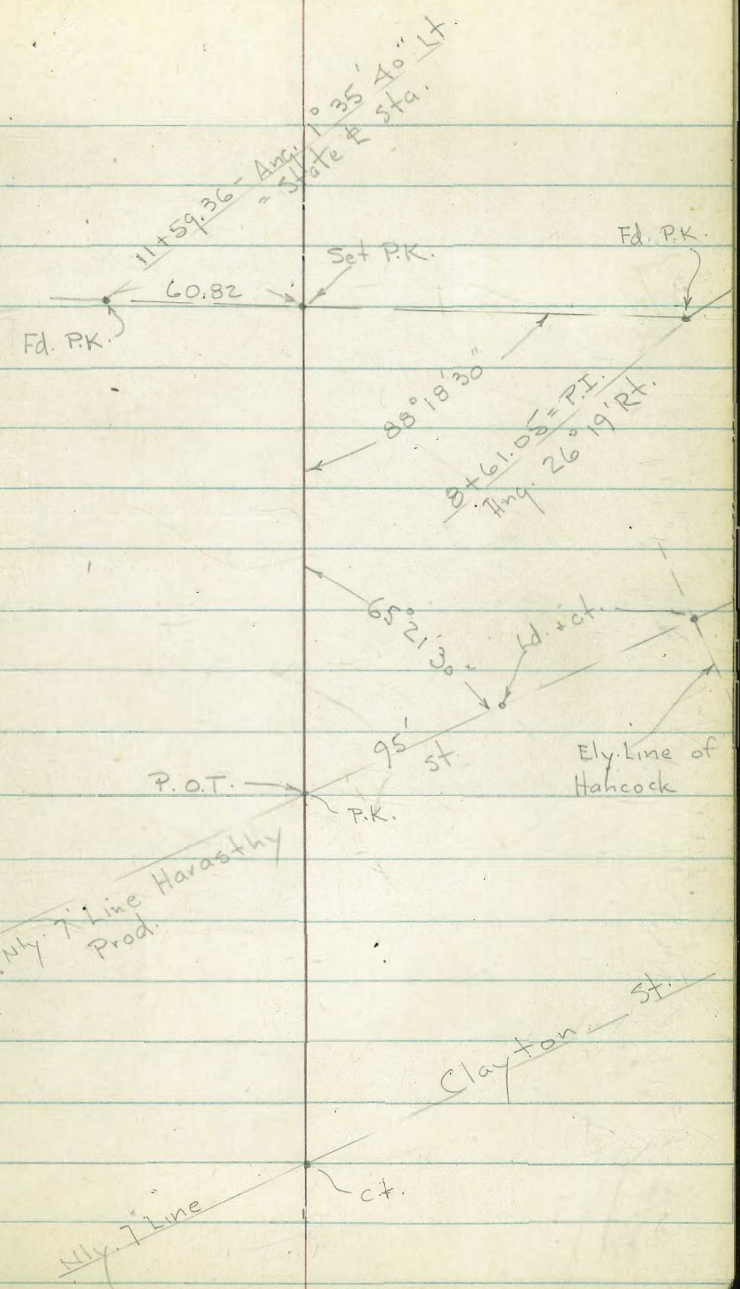 11+59.36 - Ang. 1° 35' 40" Lt.
= State ℄ Sta.
Fd. P.K.
Set P.K.
60.82
Fd. P.K.
88° 18' 30"
8+61.05 = P.I.
Ang. 26° 19' Rt.
65° 21' 30"
Ld. + ct.
95'
St.
Ely. Line of
Hancock
P.O.T.
P.K.
Nly. 7' Line Harasthy
Prod.
St.
Clayton
Nly. 7' Line
ct.